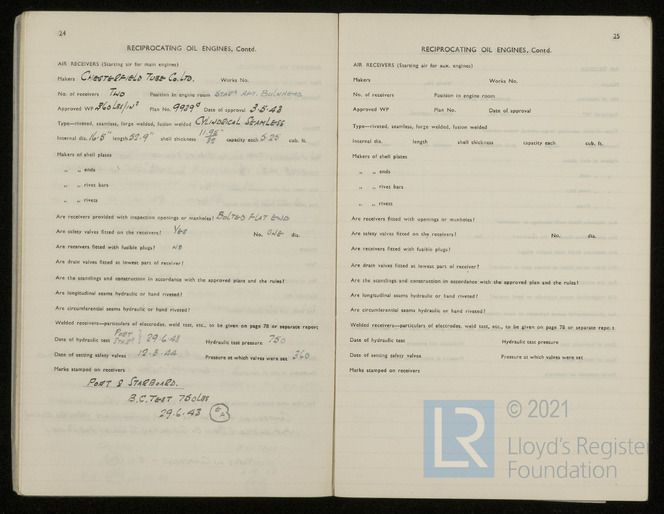 24
RECIPROCATING OIL ENGINES, Contd.
AIR RECEIVERS (Starting air for main engines)
Makers CHESTERFIELD TUBE CO. LTD. Works No.
No. of receivers TWO Position in engine room STARD AFT. BULKHEAD
Approved WP 360 LBS/IN² Plan No. 9929 Date of approval 3-5-43
Type—riveted, seamless, forge welded, fusion welded CYLINDRICAL SEAMLESS
Internal dia. 16.5" length 52.9" shell thickness capacity each 5.25 cub. ft.
Makers of shell plates
„ „ ends
„ „ rivet bars
„ „ rivets
Are receivers provided with inspection openings or manholes? BOLTED FLAT END
Are safety valves fitted on the receivers? YES No. ONE dia.
Are receivers fitted with fusible plugs? NO
Are drain valves fitted at lowest part of receiver?
Are the scantlings and construction in accordance with the approved plans and the rules?
Are longitudinal seams hydraulic or hand riveted?
Are circumferential seams hydraulic or hand riveted?
Welded receivers—particulars of electrodes, weld test, etc., to be given on page 78 or separate report
Date of hydraulic test PORT STARD } 29.6.43 Hydraulic test pressure 750
Date of setting safety valves 12-5-44 Pressure at which valves were set 360
Marks stamped on receivers
PORT & STARBOARD.
B.C. TEST 750 LBS
29.6.43
25
RECIPROCATING OIL ENGINES, Contd.
AIR RECEIVERS (Starting air for aux. engines)
Makers Works No.
No. of receivers Position in engine room
Approved WP Plan No. Date of approval
Type—riveted, seamless, forge welded, fusion welded
Internal dia. length shell thickness capacity each cub. ft.
Makers of shell plates
„ „ ends
„ „ rivet bars
„ „ rivets
Are receivers fitted with openings or manholes?
Are safety valves fitted on the receivers? No. dia.
Are receivers fitted with fusible plugs?
Are drain valves fitted at lowest part of receiver?
Are the scantlings and construction in accordance with the approved plans and the rules?
Are longitudinal seams hydraulic or hand riveted?
Are circumferential seams hydraulic or hand riveted?
Welded receivers—particulars of electrodes, weld test, etc., to be given on page 78 or separate report
Date of hydraulic test Hydraulic test pressure
Date of setting safety valves Pressure at which valves were set
Marks stamped on receivers
LR
© 2021
Lloyd's Register
Foundation